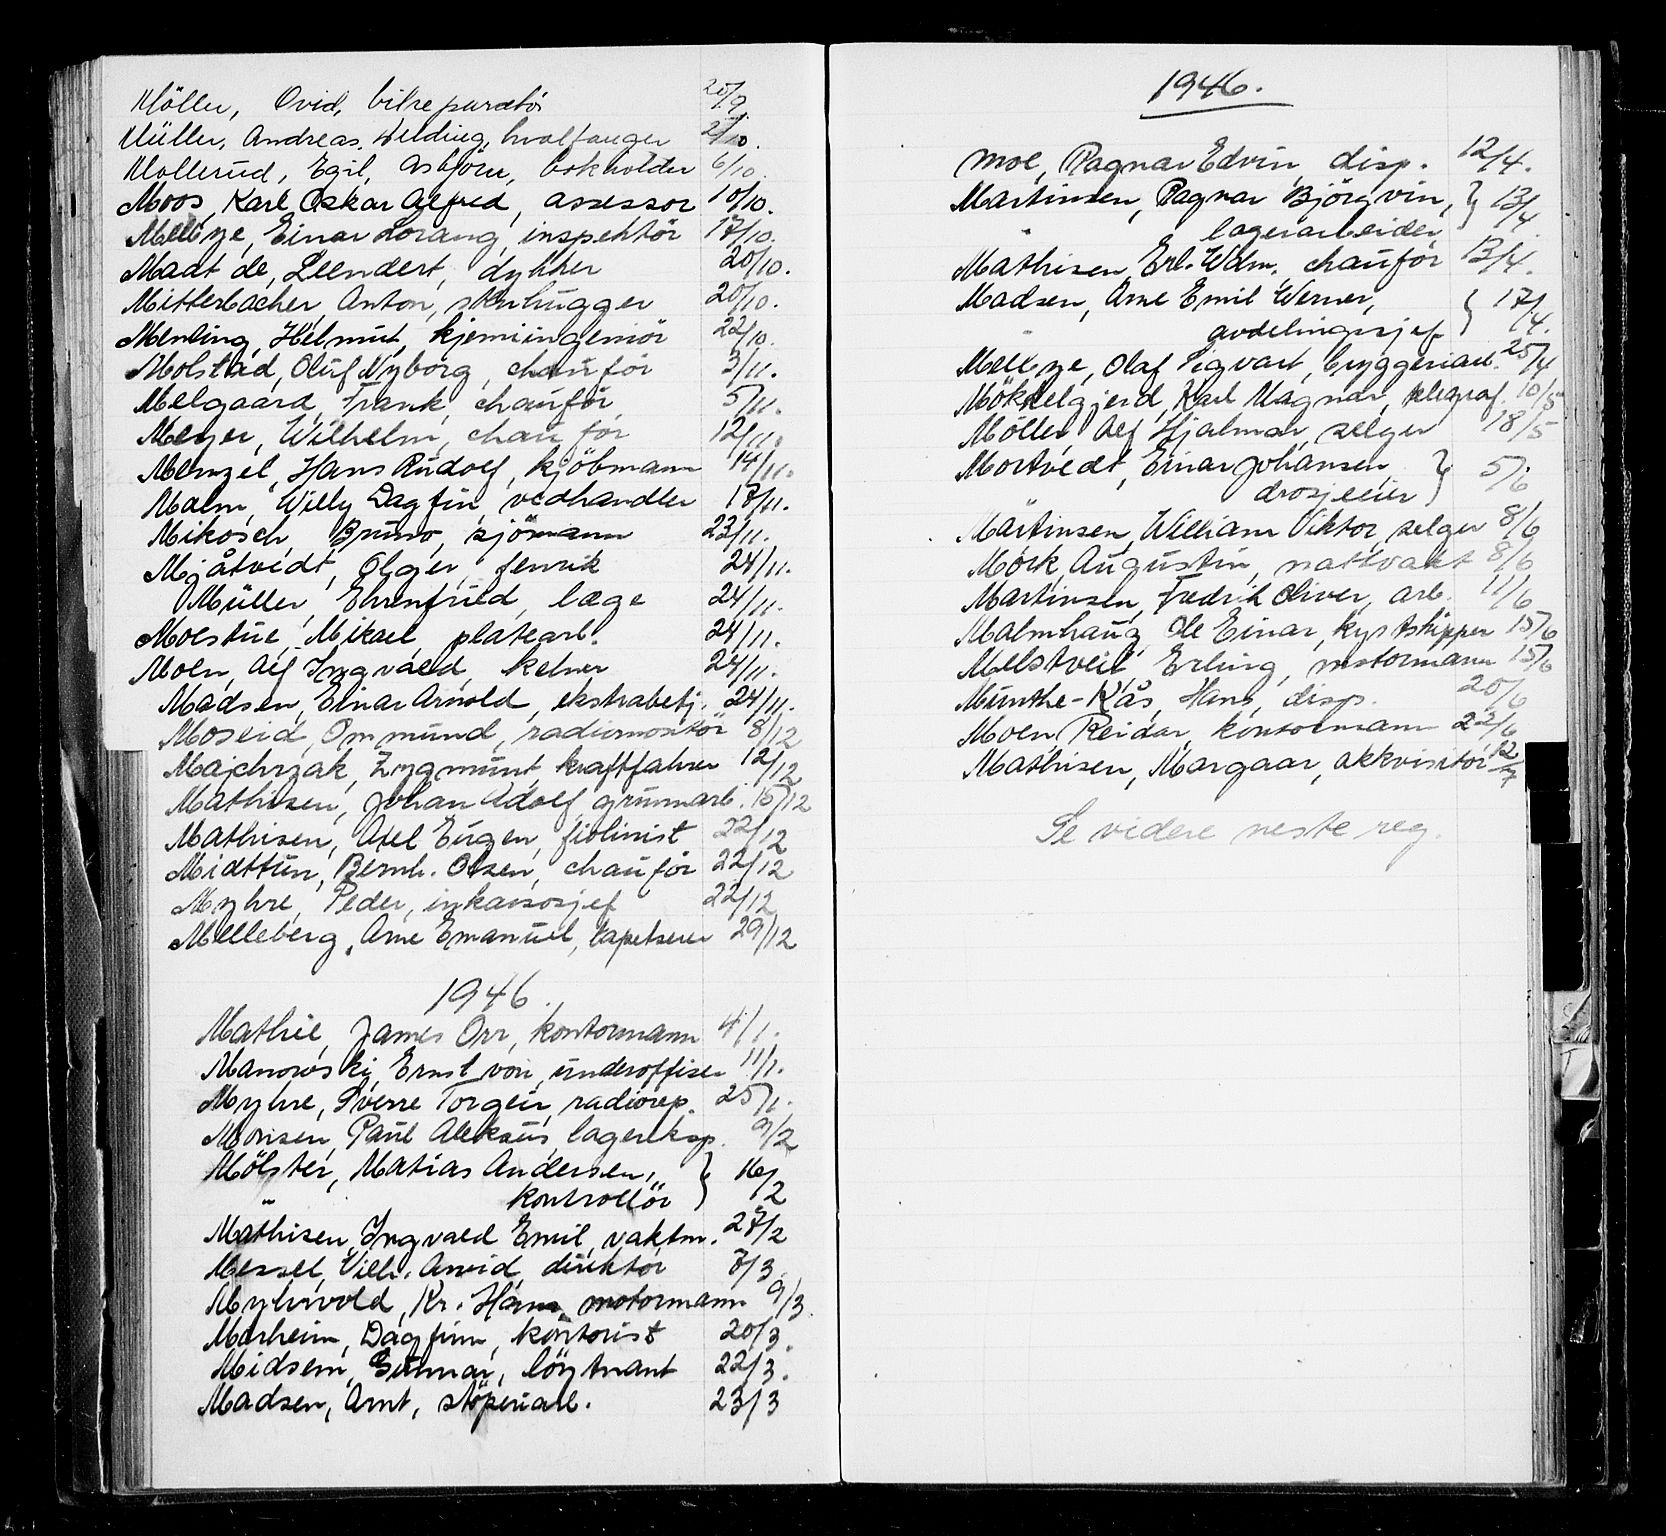 Möller, Ovid, bilreparatör 25/9
Müller, Andreas, Welding, hvalfanger 2/10.
Mollerud, Egil, Asbjörn, bokholder 6/10.
Moos, Karl Oskar Alfred, assessor 10/10.
Mellbye, Einar Lorang, inspektör 17/10.
Maat de, Leendert, dykker 20/10.
Mitterbacher, Anton, stenhugger 20/10.
Menling, Helmut, kjemiingeniör 22/10.
Molstad, Oluf Nyborg, chauför 3/11.
Melgaard, Frank, chauför 5/11.
Meyer, Wilhelm, chauför 12/11.
Menzel, Hans Rudolf, kjöbmann 14/11.
Malm, Willy Dagfin, vedhandler 17/11.
Mikosch, Bruno, sjömann 23/11.
Mjåtvedt, Olger, fenrik 24/11.
Müller, Ehrenfried, læge 24/11.
Moestue, Mikael, platearb. 24/11.
Moen, Alf Ingvald, kelner 24/11.
Madsen, Einar Arnold, ekstrabetj. 24/11.
Moseid, Ommund, radiomontör 8/12
Majchrzak, Zygmunt, kraftfahrer 12/12
Mathisen, Johan Adolf, grunnarb. 15/12
Mathisen, Axel Eugen, fiolinist 22/12
Midttun, Bernh. Olsen, chauför 22/12
Myhre, Peder, inkassosjef 22/12
Melleberg, Arne Emanuel, tapetserer 29/12
1946.
Mathie, James Orr, kontormann 4/1.
Manowski, Ernst von, underoffiser 11/1.
Myhre, Sverre Torgeir, radiorep. 25/1.
Monsen, Paul Aleksius, lagereksp. 9/2
Mölster, Matias Andersen, } 16/2
" kontrollör
Mathisen, Ingvald Emil, vaktm. 27/2
Messel, Vilh. Arvid, direktör 7/3
Myhrvold, Kr. Hans, motormann 9/3.
Marheim, Dagfinn, kontorist 20/3.
Midsem, Gunnar, löytnant 22/3.
Madsen, Arnt, stöperiarb. 23/3
1946.
Moe, Ragnar Edvin, disp. 12/4.
Martinsen, Ragnar Björgvin, } 13/4.
" lagerarbeider
Mathisen, Erl. Wdm. chauför 13/4.
Madsen, Arne Emil Werner, } 17/4.
" avdelingssjef
Mellbye, Olaf Sigvart, bryggeriarb. 25/4
Mökkelgjerd, Karl Magnar, telegraf. 10/5
Möller, Alf Hjalmar, selger 18/5
Mortvedt, Einar Johansen, } 5/6
drosjeeier
Martinsen, William Viktor, selger 8/6
Mörk, Augustin, nattvakt 8/6
Martinsen, Fredrik Oliver, arb. 11/6
Malmhaug, Ole Einar, kystskipper 15/6
Melstveit, Erling, motormann 15/6
Munthe-Kås, Hans, disp. 20/6
Moen, Reidar, kontormann 22/6
Mathisen, Margaar, akkvisitör 12/7
Se videre neste reg.